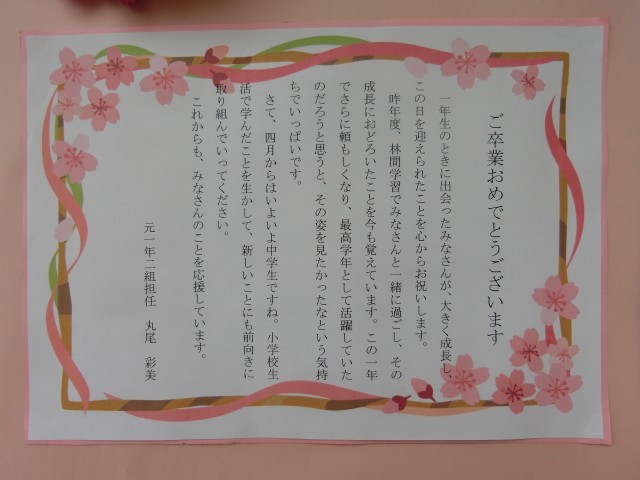 ご卒業おめでとうございます
一年生のときに出会ったみなさんが、大きく成長し、
この日を迎えられたことを心からお祝いします。
昨年度、林間学習でみなさんと一緒に過ごし、その
成長におどろいたことを今も覚えています。この一年
でさらに頼もしくなり、最高学年として活躍していた
のだろうと思うと、その姿を見たかったなという気持
ちでいっぱいです。
さて、四月からはいよいよ中学生ですね。小学校生
活で学んだことを生かして、新しいことにも前向きに
取り組んでいってください。
これからも、みなさんのことを応援しています。
元一年二組担任 丸尾 彩美